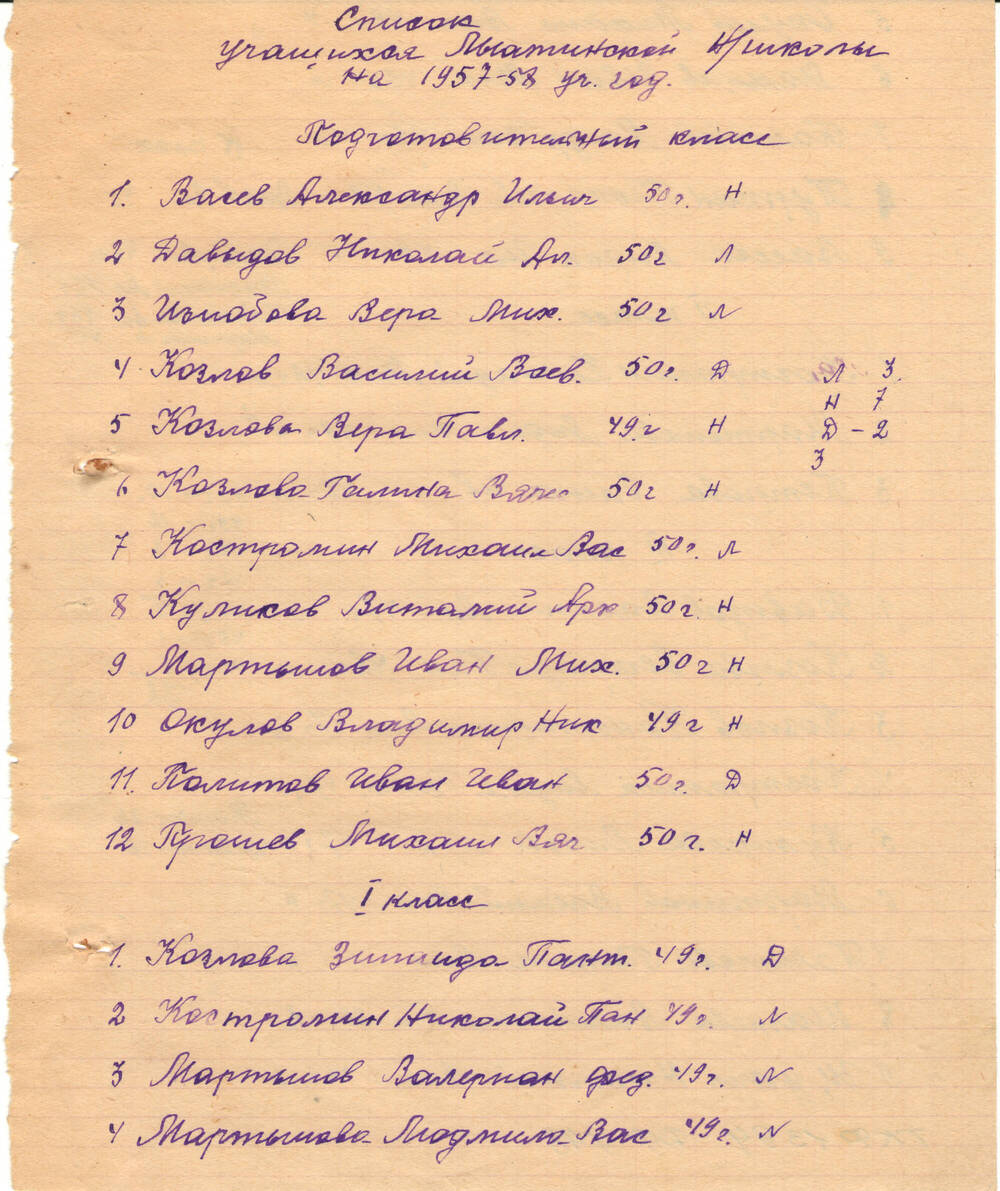 Список
учащихся Лыатинской н/школы
на 1957-58 уч. год.
Подготовительный класс
1. Васев Александр Ильич 50г. Н
2 Давыдов Николай Ал. 50г Л
3 Изюбова Вера Мих. 50г Л
4 Козлов Василий Вс. 50г. Д Л 3.
Н 7
5 Козлова Вера Павл. 49.г Н Д - 2
3
6 Козлова Галина Вяч 50г Н
7 Костромин Михаил Вас 50г. Л
8 Куликов Виталий Арк 50г. Н
9 Мартышов Иван Мих. 50г Н
10 Окулов Владимир Ник 49г Н
11. Политов Иван Иван 50г. Д
12 Михаил Вяч 50г. Н
I класс
1. Козлова Зинаида Пант. 49г. Д
2 Костромин Николай Пан 49г. Л
3 Мартышов Валериан Фед. 49г. Л
4 Мартышова Людмила Вас 49г. Л